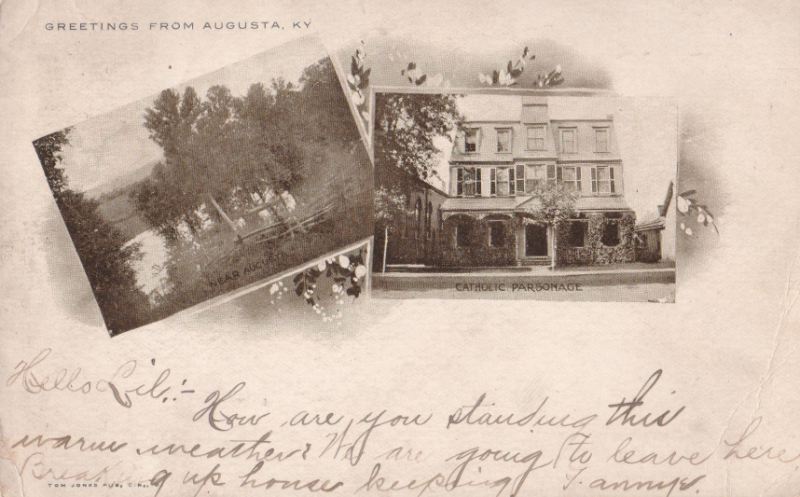 GREETINGS FROM AUGUSTA, KY
NEAR AUGUSTA
CATHOLIC PARSONAGE
Hello Lil:-
How are you standing this
warm weather? We are going to leave here,
Breaking up house keeping
TOM JONES PUB. CIN.